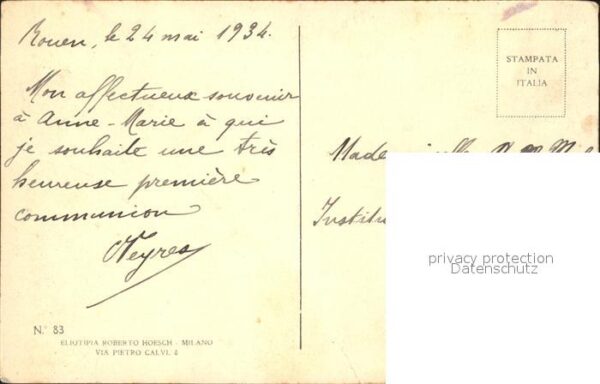 Rouen, le 24 mai 1934.
Mon affectueux souvenir
à Anne-Marie à qui
je souhaite une très
heureuse première
communion
N. 83
ELIOTIPIA ROBERTO HOESCH - MILANO
VIA PIETRO CALVI, 2
STAMPATA
IN
ITALIA
privacy protection
Datenschutz